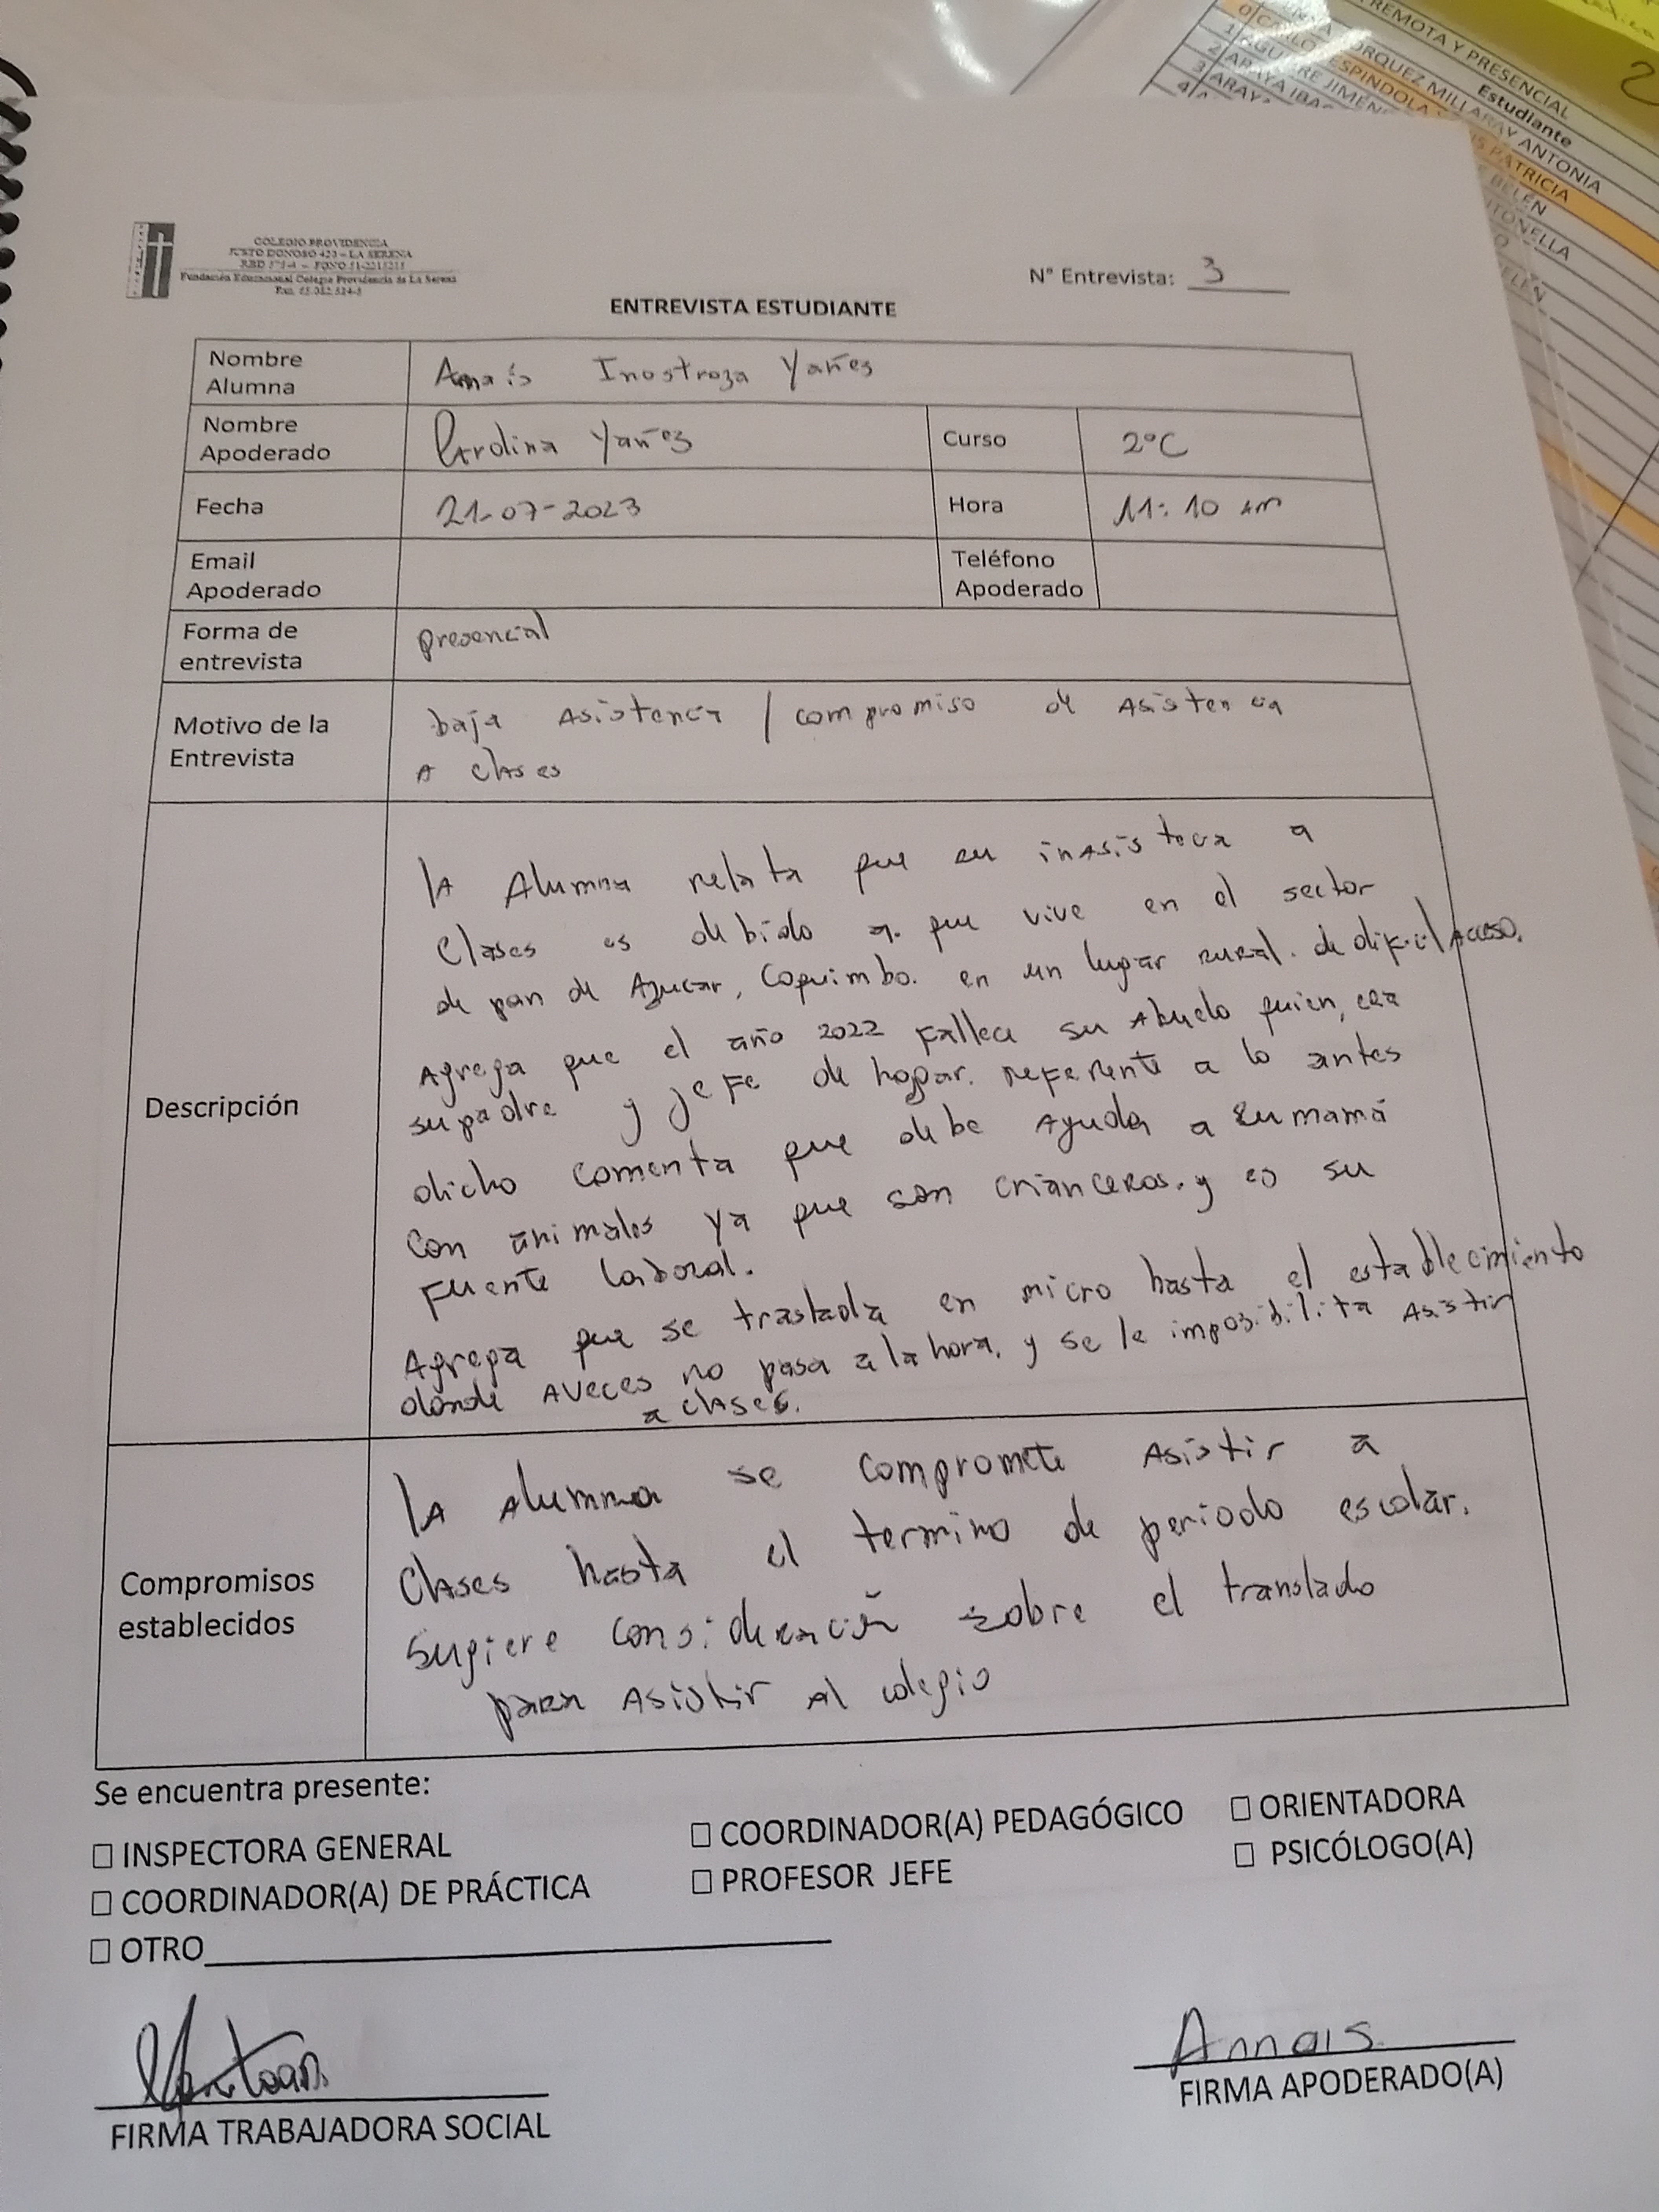 REMOTA Y PRESENCIAL
Estudiante
ÓRQUEZ MILLARAY ANTONIA
ESPINDOLA
PATRICIA
BELÉN
COLEGIO PROVIDENCIA
JUSTO DONOSO 420 – LA SERENA
Fundación Educacional Colegio Providencia de La Serena
N° Entrevista: 3
ENTREVISTA ESTUDIANTE
Nombre Alumna Anaís Inostroza Yañes
Nombre Apoderado Carolina Yañez Curso 2°C
Fecha 21-07-2023 Hora 11:10 am
Email Apoderado Teléfono Apoderado
Forma de entrevista presencial
Motivo de la Entrevista baja Asistencia / compromiso de Asistencia
A clases
Descripción
la Alumna relata que su inasistecia a
Clases es debido a que vive en el sector
de pan de Azucar, Coquimbo. en un lugar rural. de dificil acceso.
Agrega que el año 2022 Fallece su Abuelo quien, era
su padre y jefe de hogar. referente a lo antes
dicho comenta que debe Ayudar a su mamá
con animales ya que son crianceros. y es su
Fuente laboral.
Agrega que se traslada en micro hasta el establecimiento
donde Aveces no pasa a la hora, y se le imposibilita Asistir
a clases.
Compromisos establecidos
la Alumna se compromete Asistir a
Clases hasta el termino de periodo escolar.
Sugiere consideración sobre el translado
para Asistir al colegio
Se encuentra presente:
☐ INSPECTORA GENERAL ☐ COORDINADOR(A) PEDAGÓGICO ☐ ORIENTADORA
☐ COORDINADOR(A) DE PRÁCTICA ☐ PROFESOR JEFE ☐ PSICÓLOGO(A)
☐ OTRO
Annais
FIRMA TRABAJADORA SOCIAL FIRMA APODERADO(A)